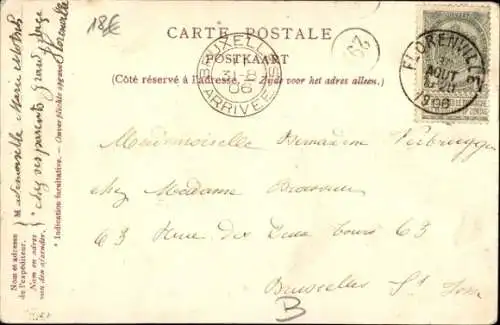 18€
CARTE POSTALE
POSTKAART
(Côté réservé à l'adresse. — Zijde voor het adres alleen.)
BRUXELLES
31-8
06
ARRIVÉE
29
FLORENVILLE
AOUT
1906
Mademoiselle Bernadem Verbruggen
chez Madame
63 Rue des Deux Tours 63
Bruxelles St Josse
B
Nom et adresse
de l'expéditeur.
Naam en adres
van den afzender.
Mademoiselle Marie
chez ses parents Grand Place
Florenville
* Indication facultative. — Onverplichte opgave.